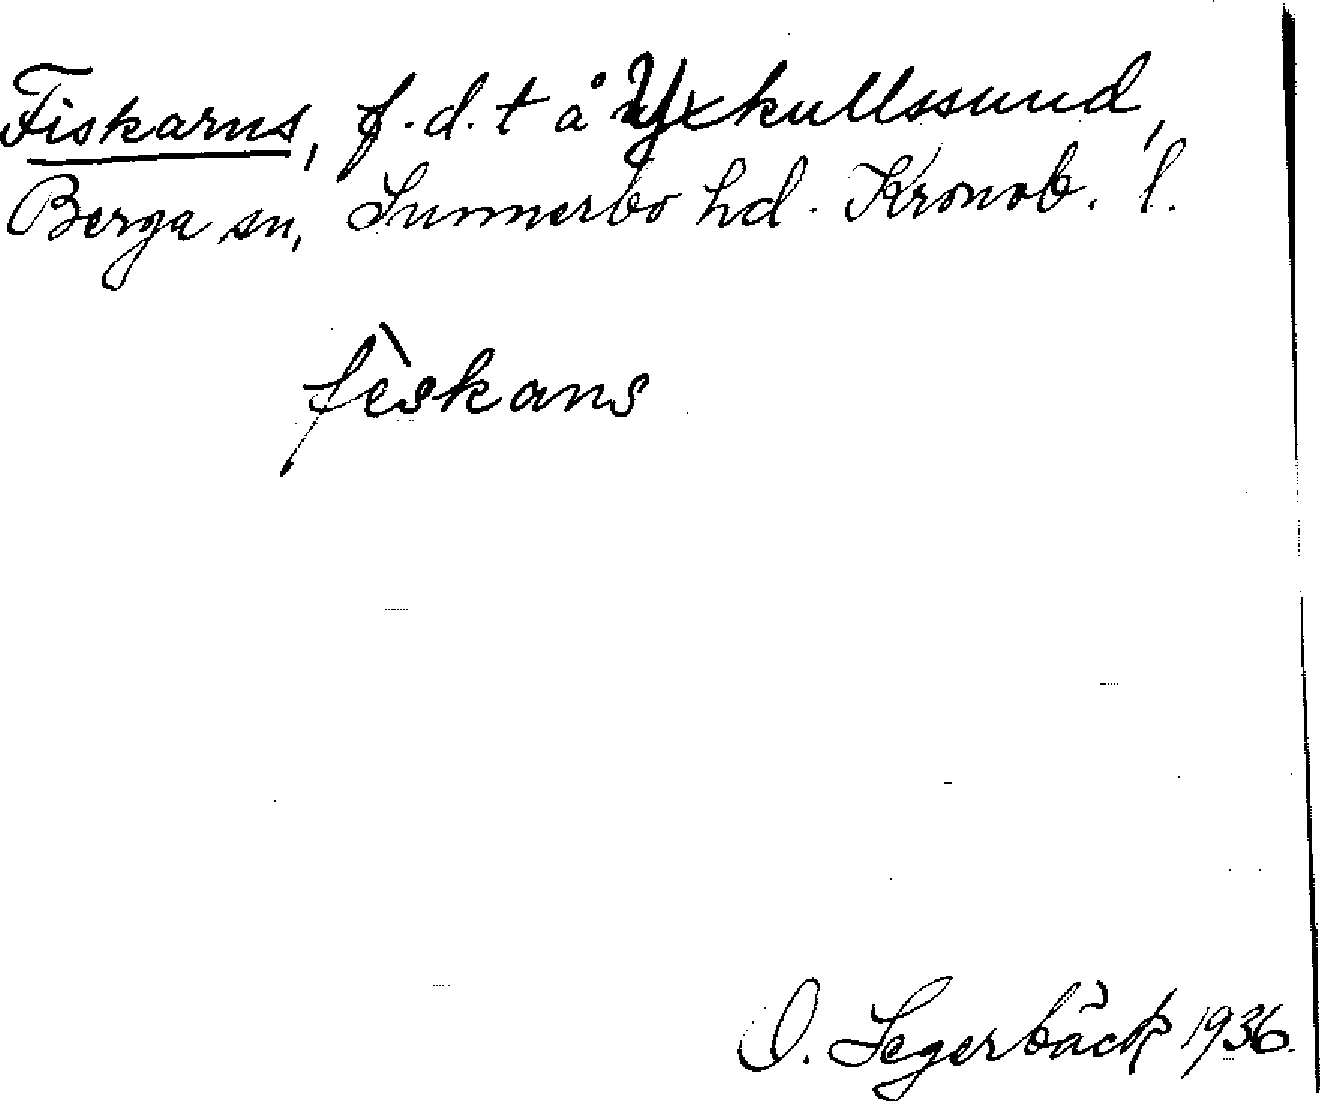 Fiskarns, f.d.t å Yxkullssund,
Berga sn, Sunnerbo hd. Kronob. l.
fèskans
O. Segerbäck 1936.